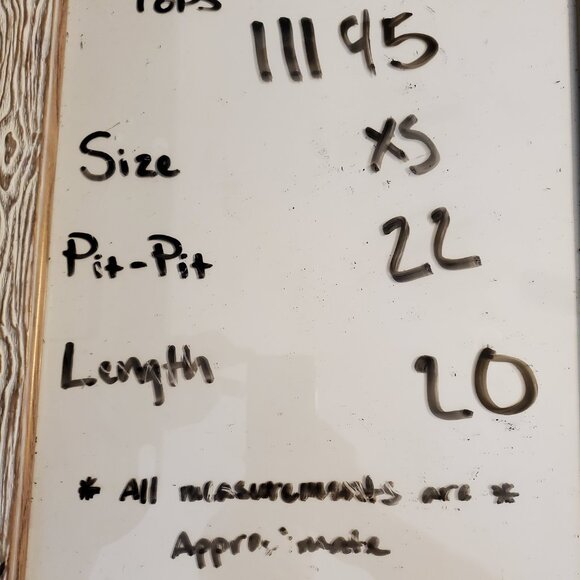 TOPS
11195
Size XS
Pit-Pit 22
Length 20
* All measurements are *
Approximate